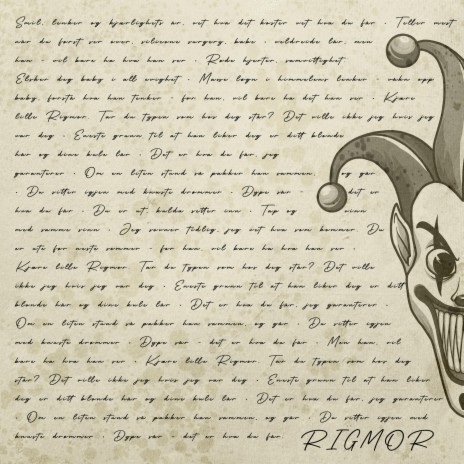 Smil, lenker og kjærlighets ar, vet hva det koster vet hva du får • Teller mest
når du først ser over, silicone surgery, babe • veldreide lår, men
han • vil bare ha hva han ser • Røde hjerter, samvittighet
Elsker deg baby i all evighet • Masse løgn i himmelens lenker • våkn opp
baby, forstå hva han tenker • for han, vil bare ha det han ser • Kjære
lille Rigmor. Tar du typen som hos deg står? Det ville ikke jeg hvis jeg
var deg • Eneste grunn til at han liker deg er ditt blonde
hår og dine kule lår • Det er hva du får, jeg
garanterer • Om en liten stund så pakker han sammen, og går
• Du sitter igjen med knuste drømmer • Dype sår - det er
hva du får • Du er ut, kulda sitter inn • Tap og vinn
med samme sinn • Jeg varner tidlig, jeg vet hva som kommer. Du
er ute før neste sommer - for han, vil bare ha hva han ser •
Kjære lille Rigmor. Tar du typen som hos deg står? Det ville
ikke jeg hvis jeg var deg • Eneste grunn til at han liker deg er ditt
blonde hår og dine kule lår • Det er hva du får, jeg garanterer •
Om en liten stund så pakker han sammen, og går • Du sitter igjen
med knuste drømmer • Dype sår - det er hva du får • Men han, vil
bare ha hva han ser • Kjære lille Rigmor. Tar du typen som hos deg
står? Det ville ikke jeg hvis jeg var deg • Eneste grunn til at han liker
deg er ditt blonde hår og dine kule lår • Det er hva du får, jeg garanterer
• Om en liten stund så pakker han sammen, og går • Du sitter igjen med
knuste drømmer • Dype sår - det er hva du får
RIGMOR